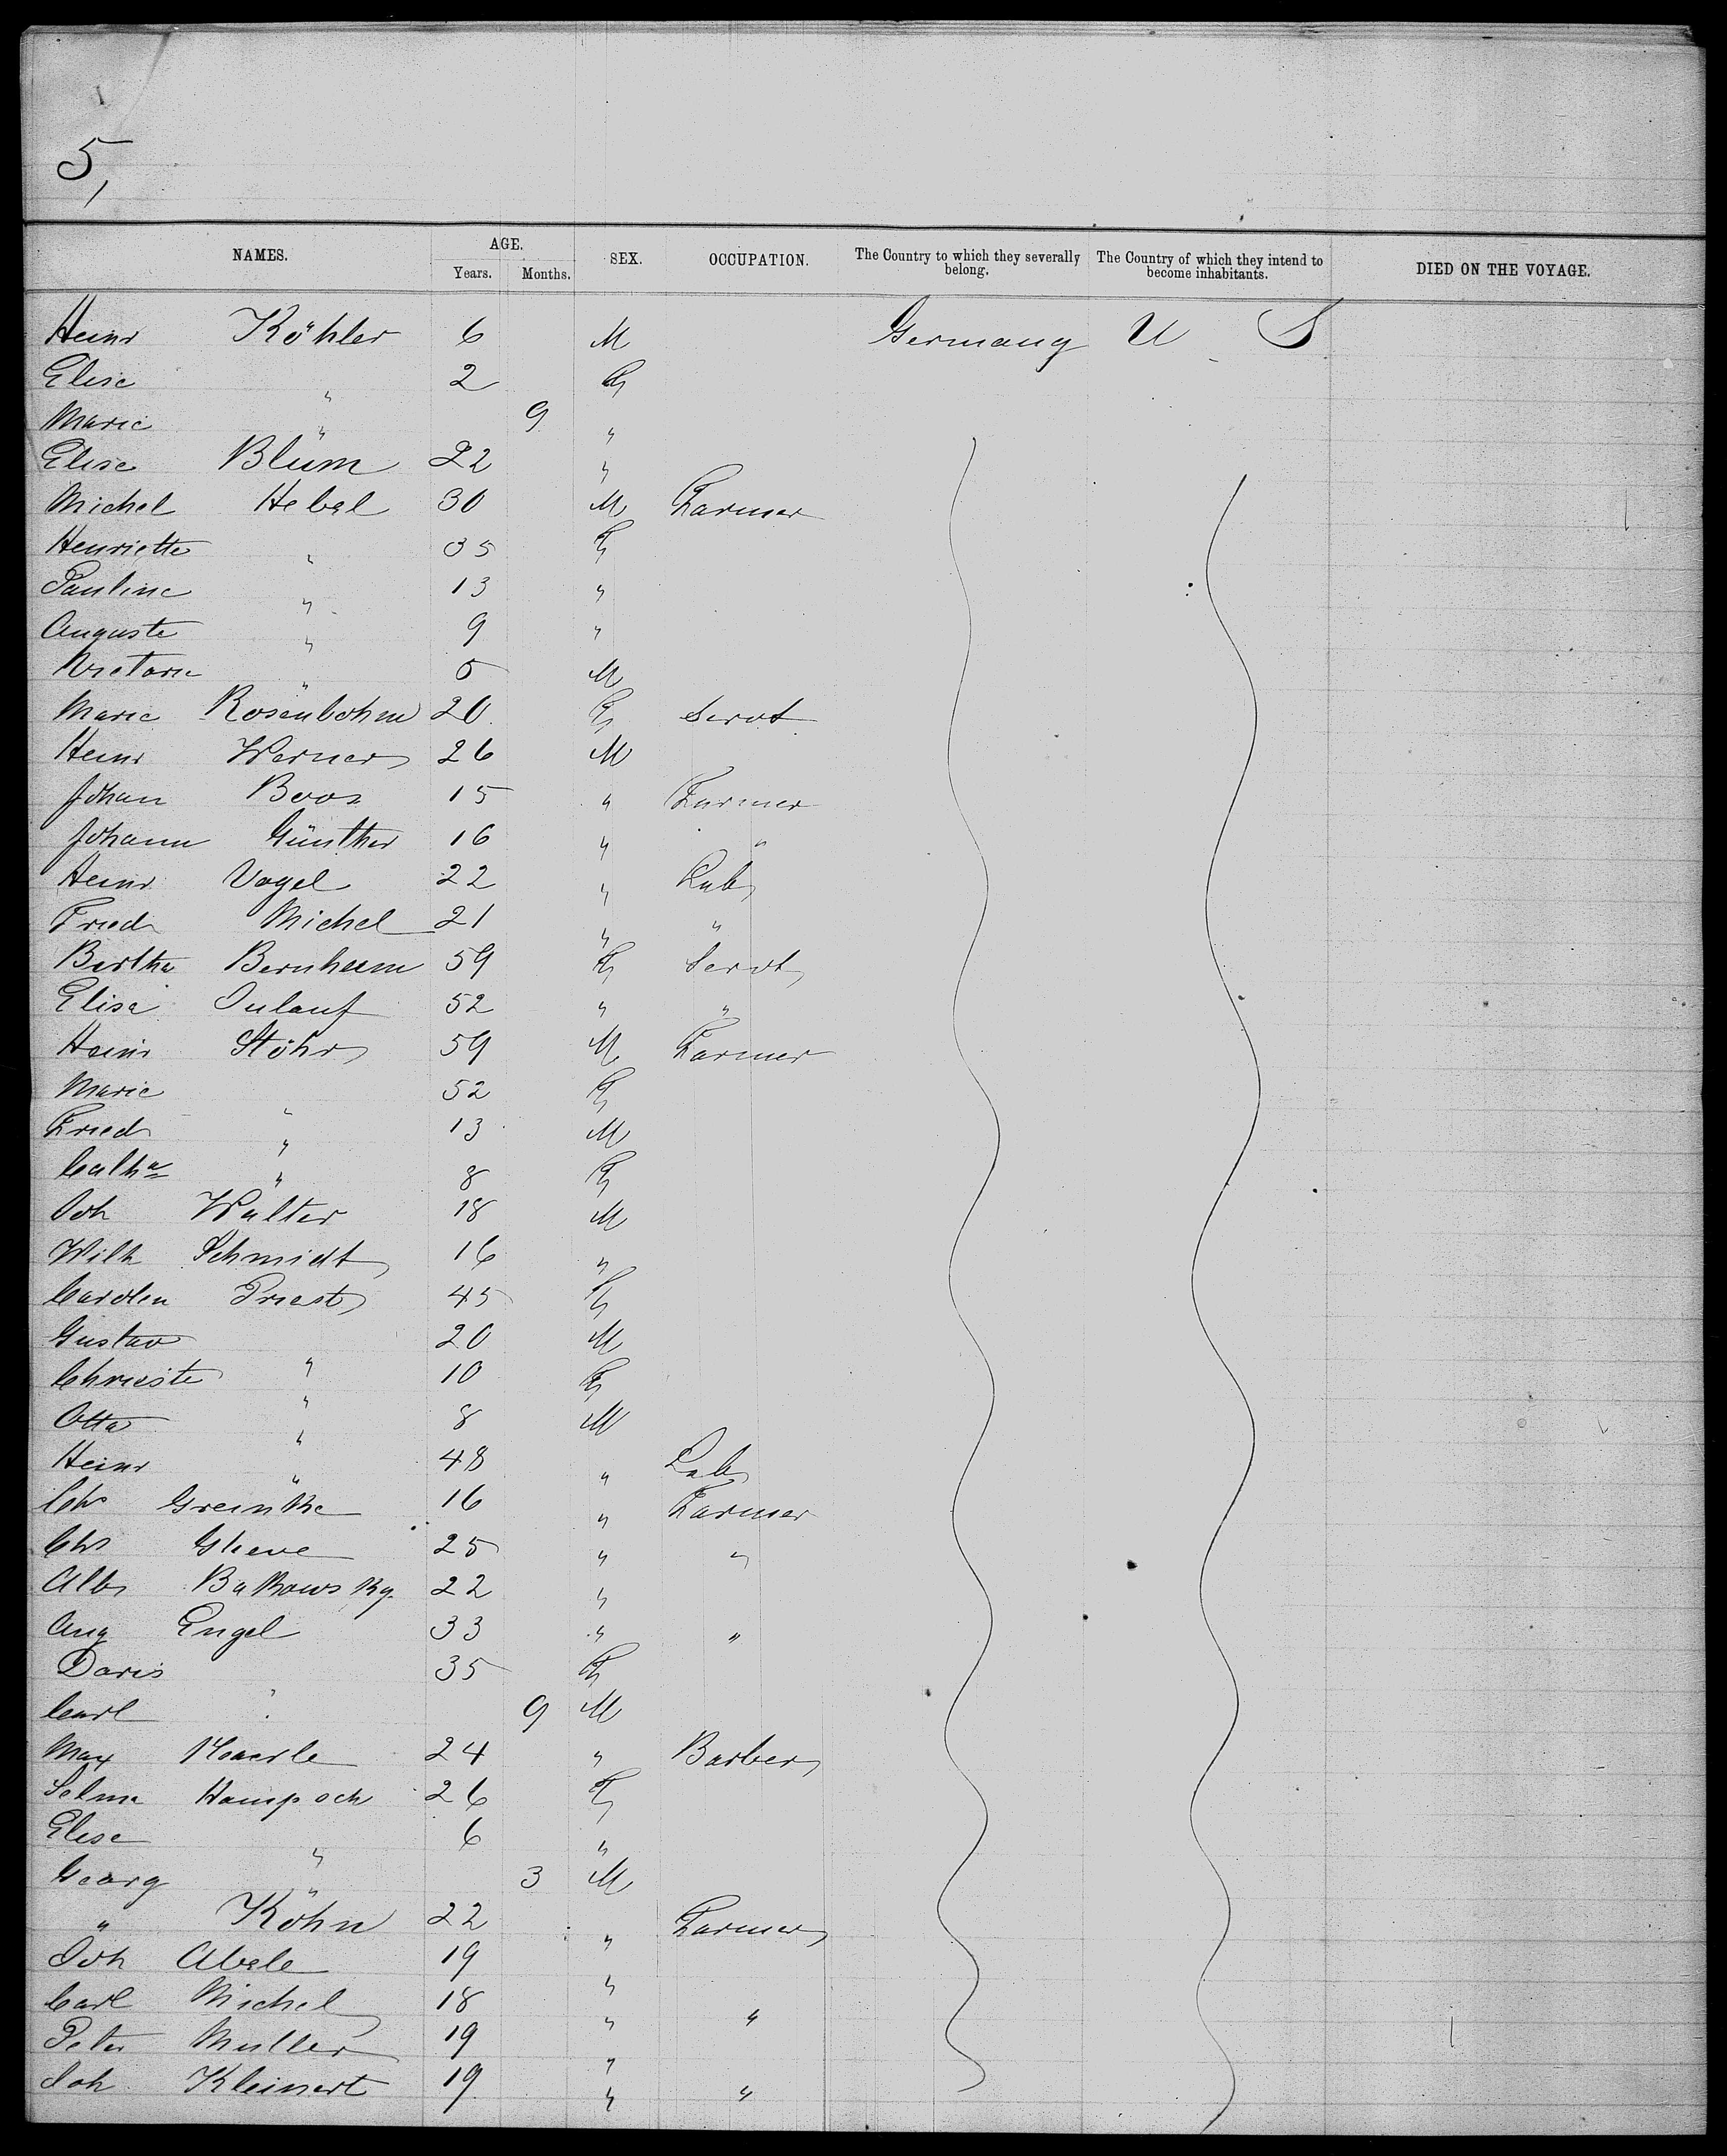 5,
NAMES. AGE. Years. Months. SEX. OCCUPATION. The Country to which they severally belong. The Country of which they intend to become inhabitants. DIED ON THE VOYAGE.
Heinr Köhler 6 M Germany U S
Elise " 2 F
Marie " 9 "
Elise Blum 22 "
Michel Hebel 30 M Farmer
Henriette " 35 F
Pauline " 13 "
Auguste " 9 "
" 5 M
Marie Rosenbohm 20 F Servt
Heinr Werner 26 M
Johan Boos 15 " Farmer
Johann Günther 16 " "
Heinr Vogel 22 " Lab
Fried Michel 21 " "
Bertha Bernheim 59 F Servt
Elise 52 " "
Heinr Stöhr 59 M Farmer
Marie " 52 F
Fried " 13 M
Cath " 8 F
Joh Walter 18 M
Wilh Schmidt 16 "
Carolin Priest 45 F
Gustav " 20 M
Christe " 10 F
Otto " 8 M
Heinr " 48 " Lab
Chr Greinke 16 " Farmer
Chr Gleue 25 " "
Alb Bukowsky 22 "
Aug Engel 33 " "
Doris " 35 F
Carl " 9 M
Max 24 " Barber
Selma Hampoch 26 F
Elise " 6 "
Georg " 3 M
" Köhn 22 " Farmer
Joh Abele 19 "
Carl Michel 18 " "
Peter Muller 19 "
Joh Kleinert 19 " "